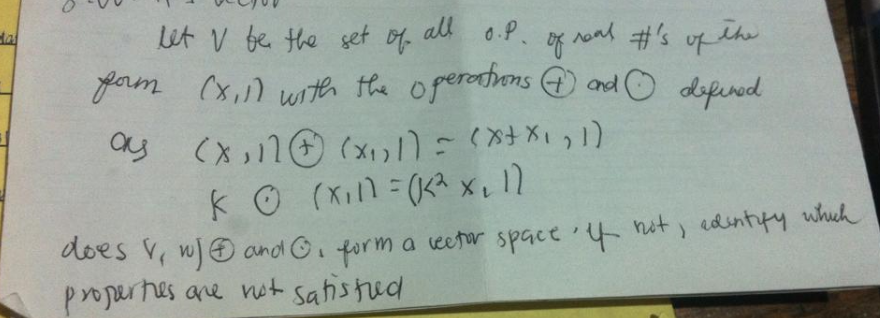 let V be the set of all o.p. of real #'s of the
form (x,1) with the operations ⊕ and ⊙ defined
as (x,1) ⊕ (x₁,1) = (x+x₁,1)
K ⊙ (x,1) = (K² x, 1)
does V, w/ ⊕ and ⊙, form a vector space. If not, identify which
properties are not satisfied